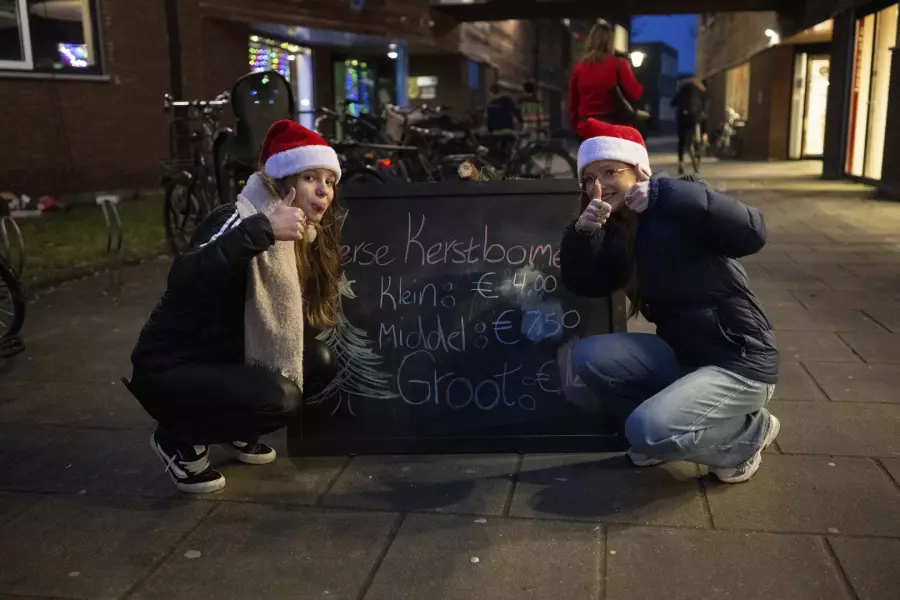 erse Kerstbome
Klein: € 4.00
Middel: € 7.50
Groot: €